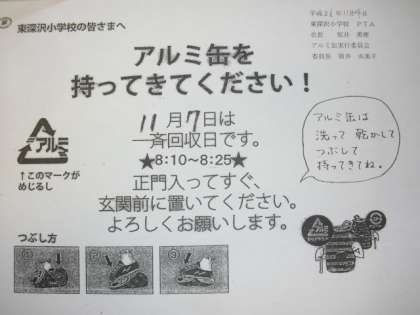 東深沢小学校の皆さまへ
東深沢小学校 PTA
会長
アルミ缶実行委員会
委員長
アルミ缶を
持ってきてください！
11月7日は
一斉回収日です。
★8:10～8:25★
アルミ
↑このマークが
めじるし
正門入ってすぐ、
玄関前に置いてください。
よろしくお願いします。
アルミ缶は
洗って 乾かして
つぶして
持ってきてね。
つぶし方
① ② ③